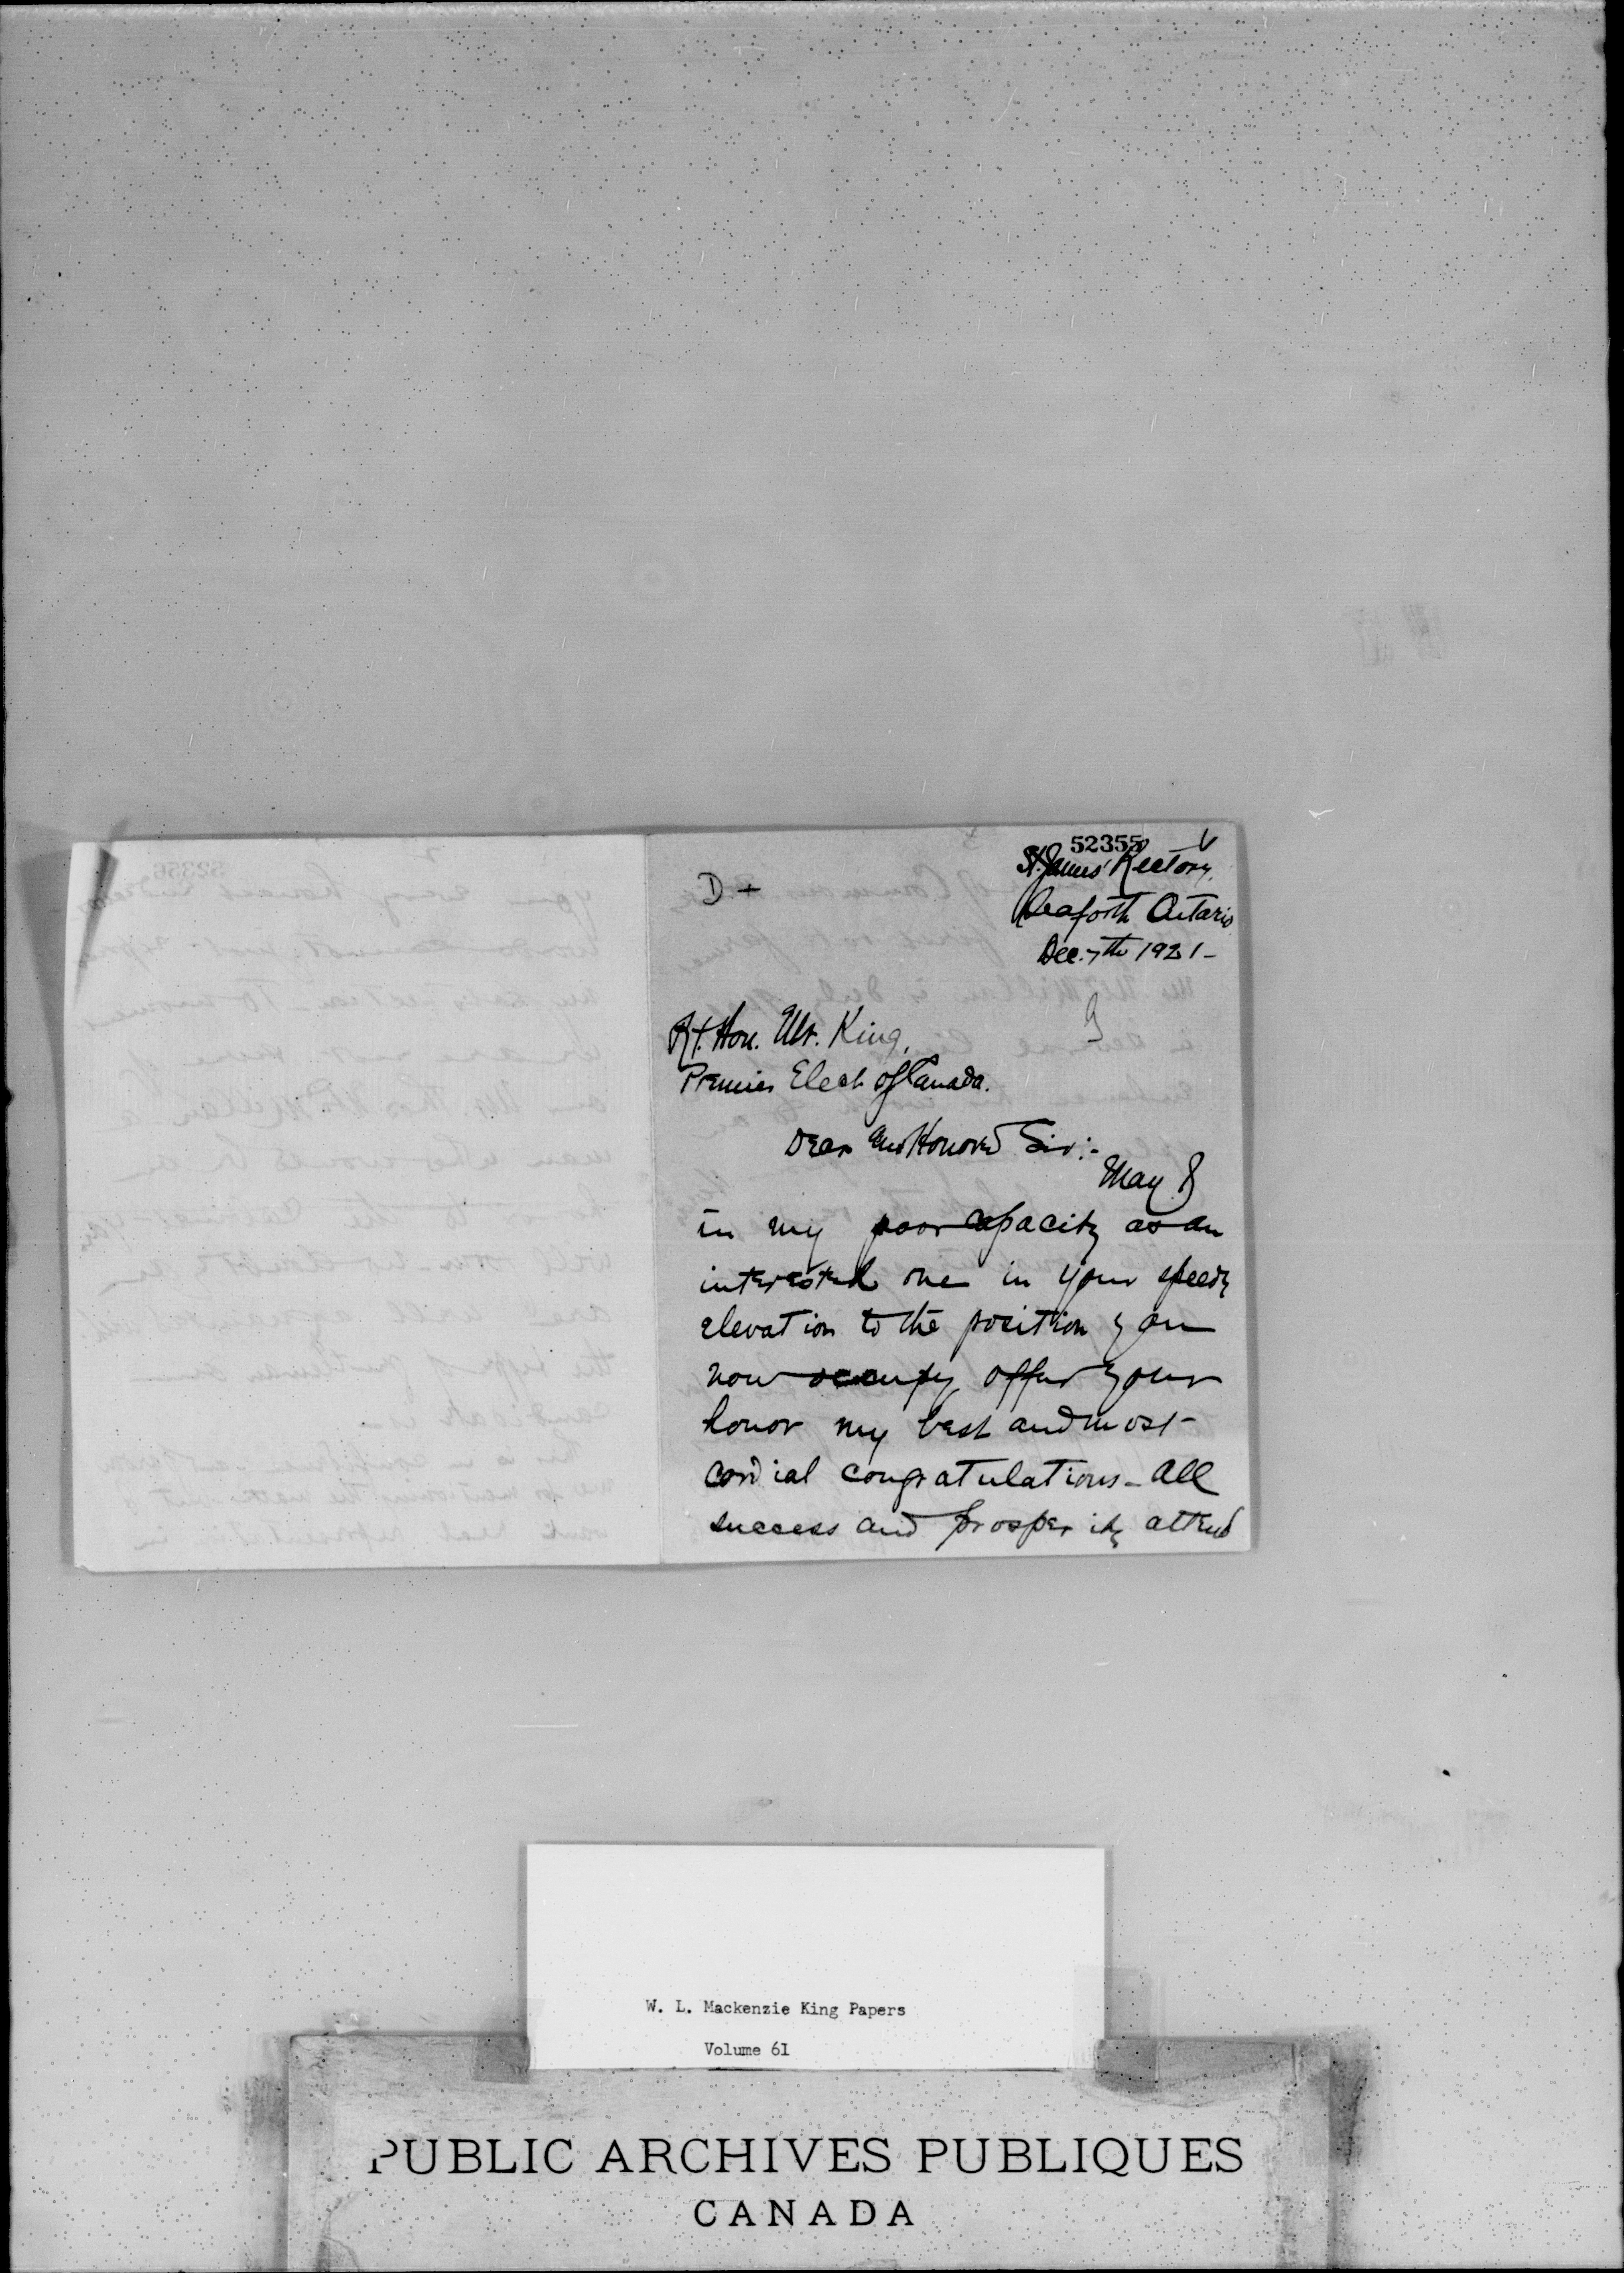 52355
D +
St. James' Rectory,
Seaforth Ontario
Dec. 7th 1921-
Rt. Hon. Mr. King,
Premier Elect of Canada.
Dear and Honored Sir:-
May I
in my poor capacity as an
interested one in your speedy
elevation to the position you
now occupy, offer your
honor my best and most
cordial congratulations - All
success and prosperity attend
W. L. Mackenzie King Papers
Volume 61
PUBLIC ARCHIVES PUBLIQUES
CANADA